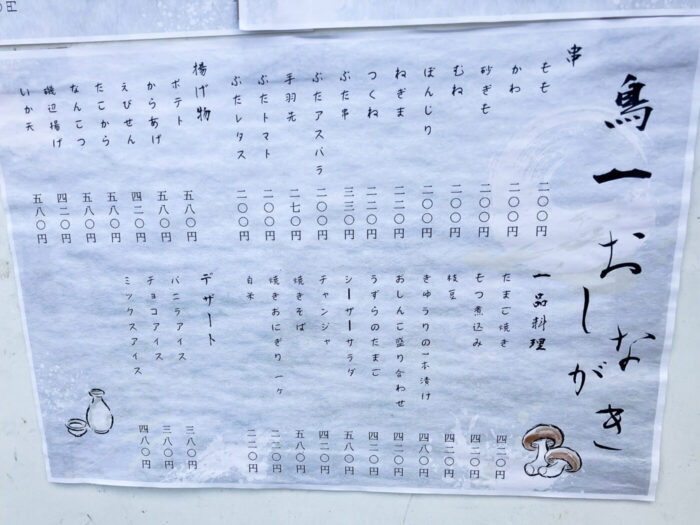 鳥一おしながき
串
もも 二〇〇円
かわ 二〇〇円
砂ぎも 二〇〇円
むね 二〇〇円
ぼんじり 二〇〇円
ねぎま 二二〇円
つくね 二二〇円
ぶた串 三三〇円
ぶたアスパラ 二〇〇円
手羽先 二七〇円
ぶたトマト 二〇〇円
ぶたレタス 二〇〇円
揚げ物
ポテト 五八〇円
からあげ 五八〇円
えびせん 四二〇円
たこから 五八〇円
なんこつ 五八〇円
磯辺揚げ 四二〇円
いか天 五八〇円
一品料理
たまご焼き 四二〇円
もつ煮込み 四二〇円
枝豆 四二〇円
きゅうりの一本漬け 四八〇円
おしんこ盛り合わせ 四二〇円
うずらのたまご 四二〇円
シーザーサラダ 五八〇円
チャンジャ 四二〇円
焼きそば 五八〇円
焼きおにぎり一ケ 二二〇円
白米 二二〇円
デザート
バニラアイス 三八〇円
チョコアイス 三八〇円
ミックスアイス 四八〇円